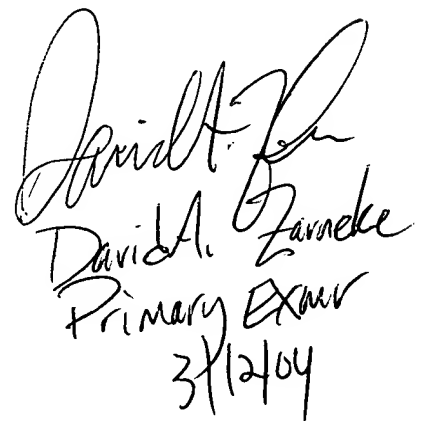 David A. Zarneke
Primary Exmr
3/12/04